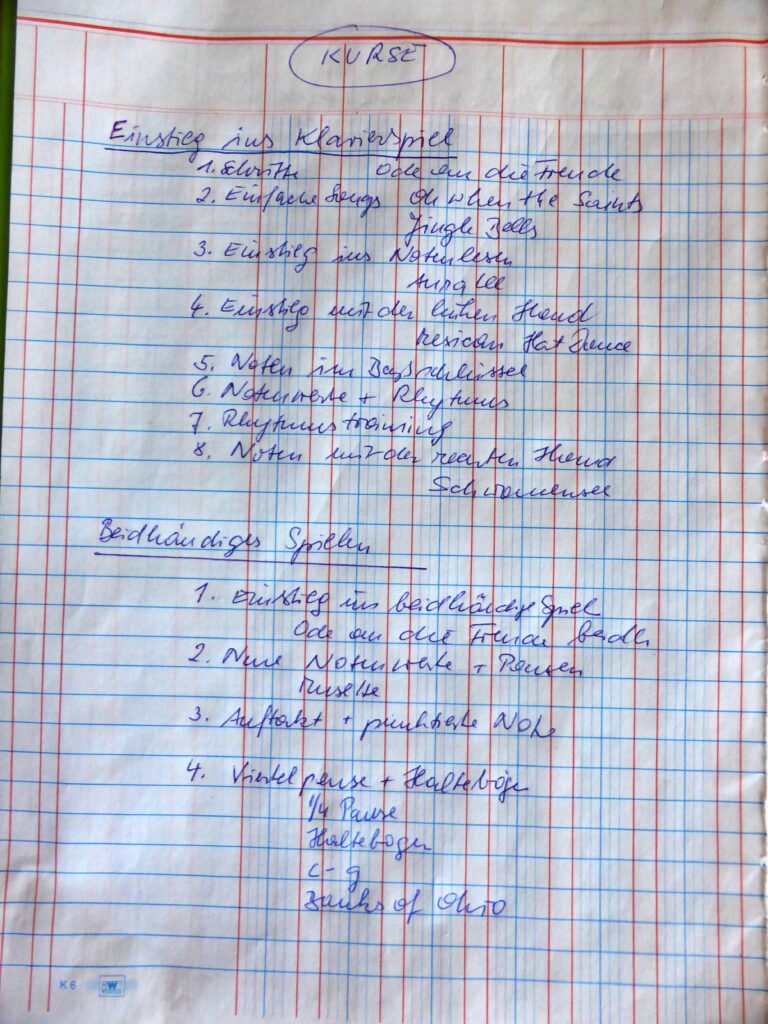 KURSE
Einstieg ins Klavierspiel
1. Schritte Ode an die Freude
2. Einfache Songs Oh when the Saints
Jingle Bells
3. Einstieg ins Notenlesen
Aura Lee
4. Einstieg mit der linken Hand
Mexican Hat Dance
5. Noten im Baßschlüssel
6. Notenwerte + Rhytmus
7. Rhytmustraining
8. Noten mit der rechten Hand
Schwanensee
Beidhändiges Spielen
1. Einstieg ins beidhändige Spiel
Ode an die Freude beidh.
2. Neue Notenwerte + Pausen
Musette
3. Auftakt + punktierte Note
4. Viertelpause + Haltebögen
1/4 Pause
Haltebogen
c-g
Banks of Ohio
K6 W